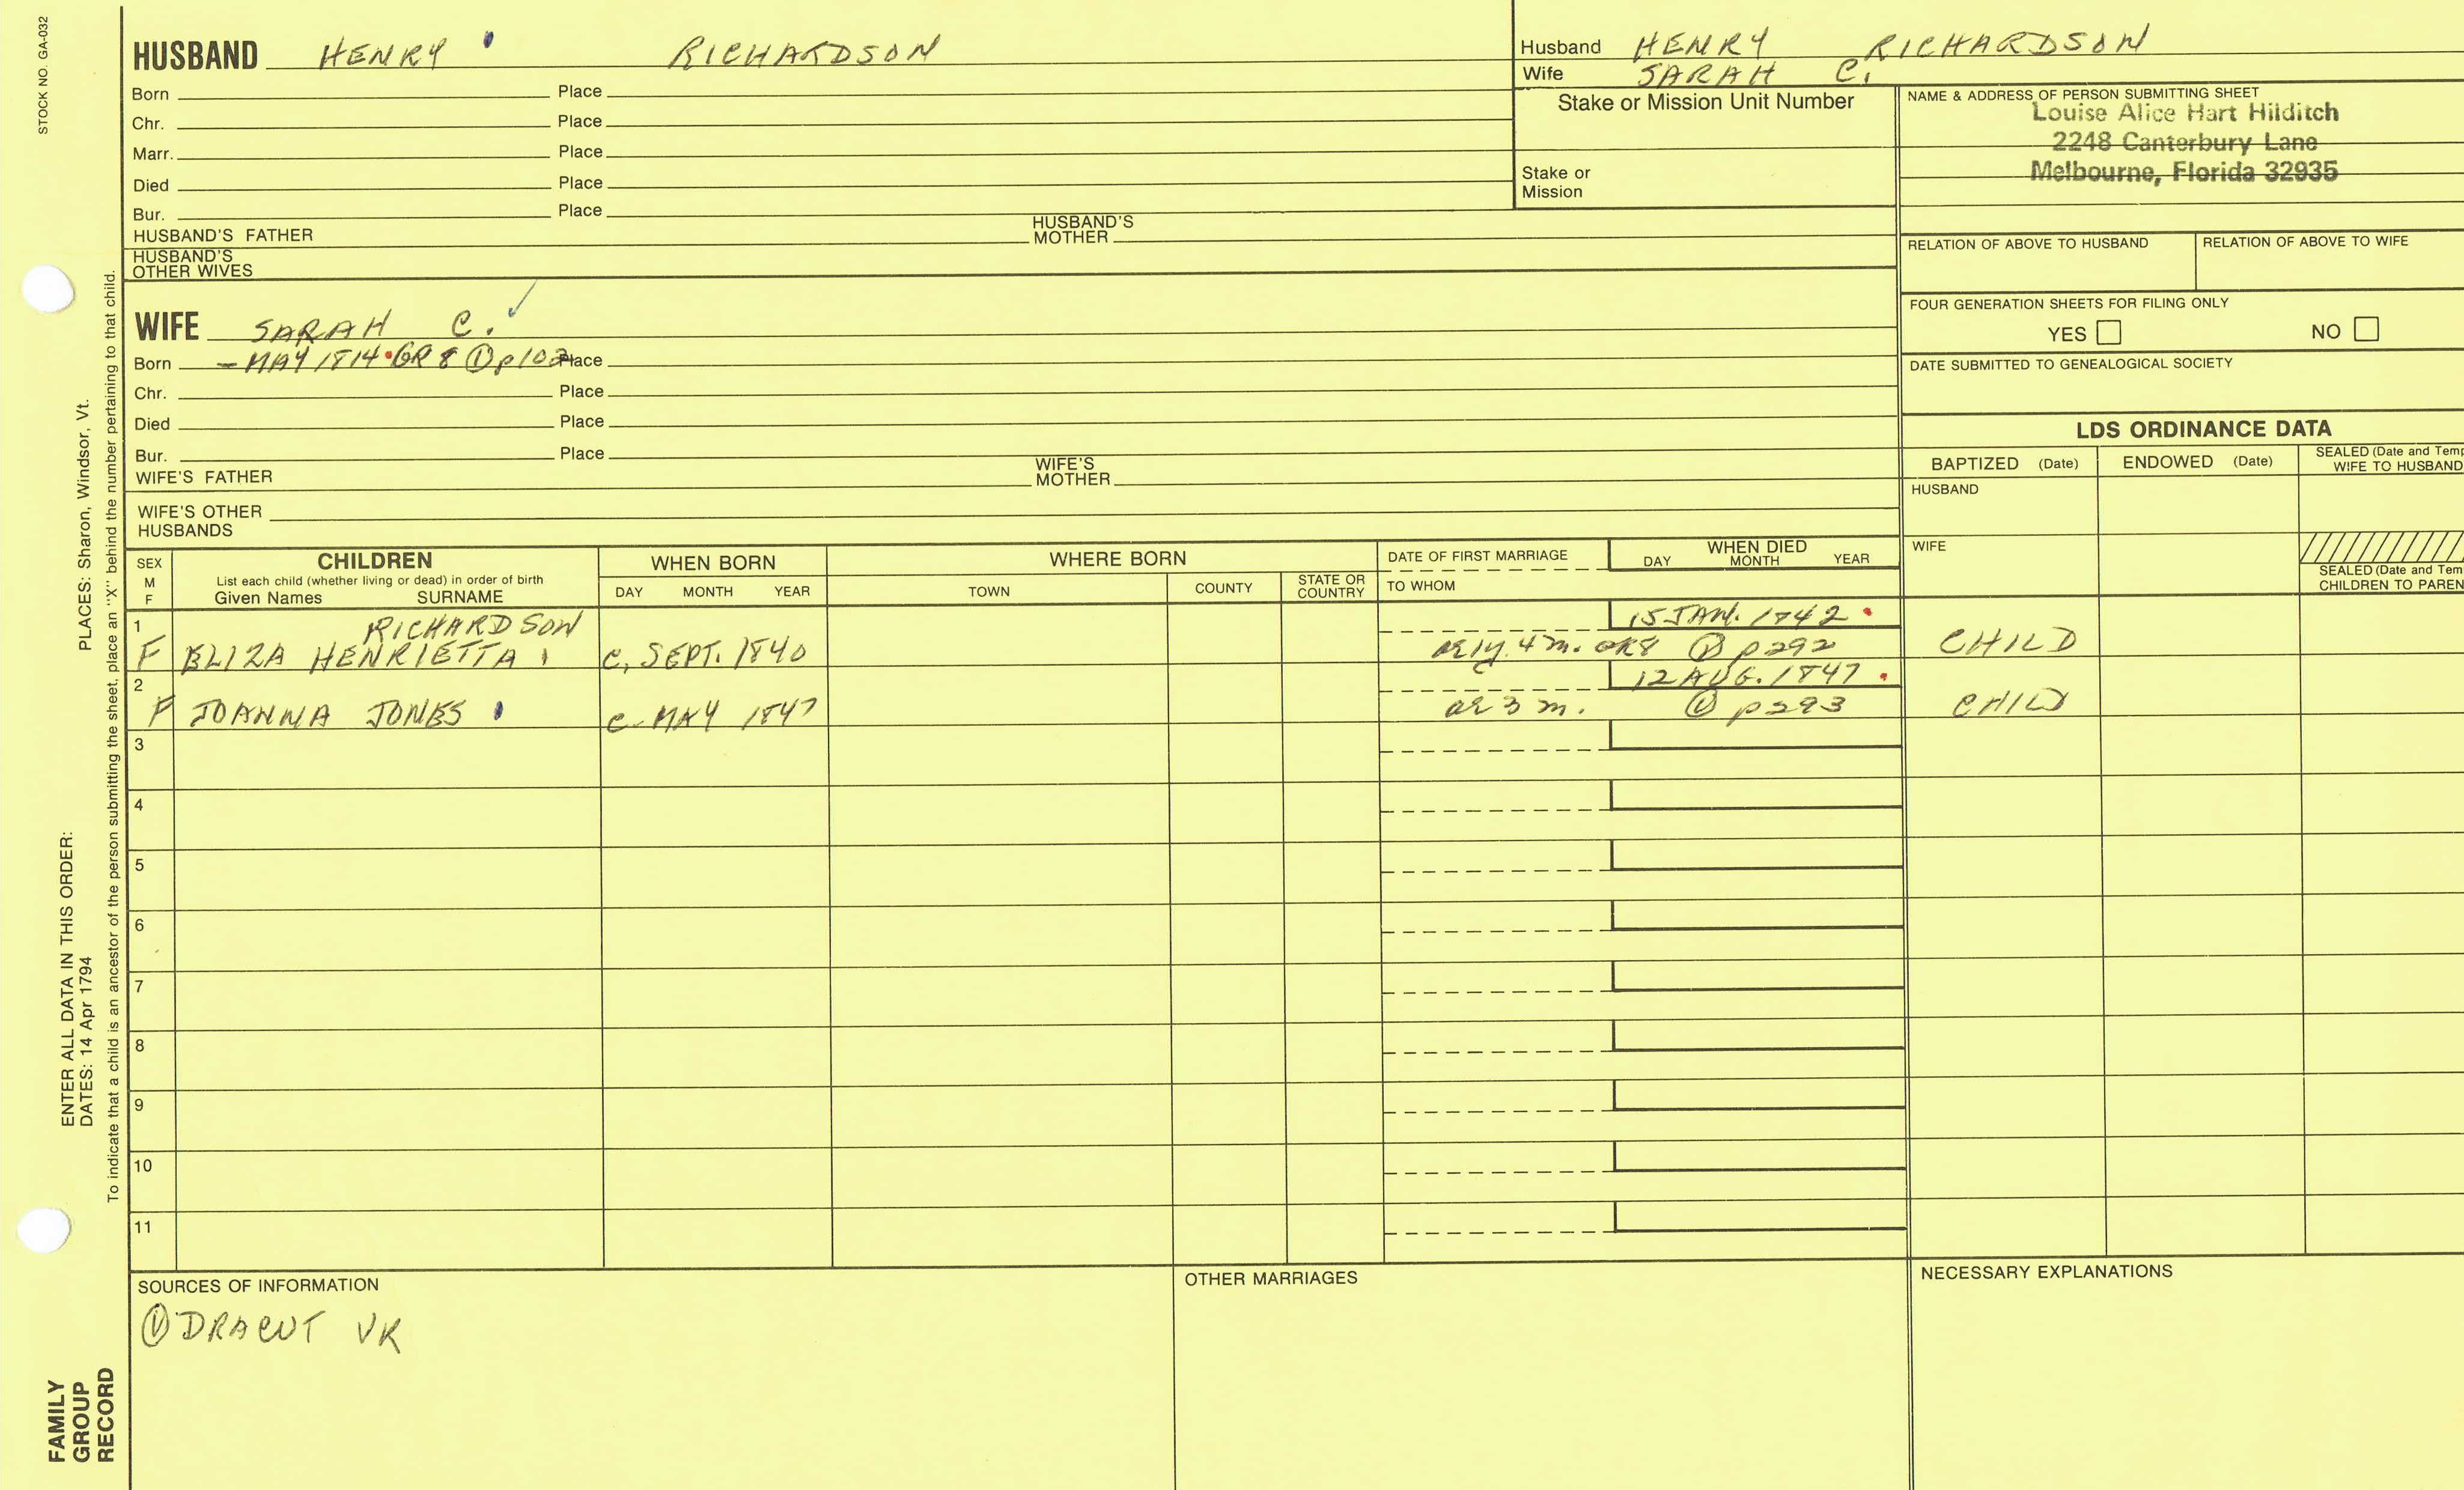 STOCK NO. GA-032
HUSBAND HENRY RICHARDSON
Born Place
Chr. Place
Marr. Place
Died Place
Bur. Place
HUSBAND'S FATHER HUSBAND'S MOTHER
HUSBAND'S OTHER WIVES
Husband HENRY RICHARDSON
Wife SARAH C.
Stake or Mission Unit Number
Stake or Mission
NAME & ADDRESS OF PERSON SUBMITTING SHEET
Louise Alice Hart Hilditch
2248 Canterbury Lane
Melbourne, Florida 32935
RELATION OF ABOVE TO HUSBAND RELATION OF ABOVE TO WIFE
FOUR GENERATION SHEETS FOR FILING ONLY
YES NO
DATE SUBMITTED TO GENEALOGICAL SOCIETY
WIFE SARAH C.
Born - MAY 1814 GR 8 ① p102 Place
Chr. Place
Died Place
Bur. Place
WIFE'S FATHER WIFE'S MOTHER
WIFE'S OTHER HUSBANDS
LDS ORDINANCE DATA
BAPTIZED (Date) ENDOWED (Date) SEALED (Date and Temp
WIFE TO HUSBAND
HUSBAND
WIFE
SEALED (Date and Tem
CHILDREN TO PAREN
SEX M F
CHILDREN
List each child (whether living or dead) in order of birth
Given Names SURNAME
WHEN BORN
DAY MONTH YEAR
WHERE BORN
TOWN COUNTY STATE OR COUNTRY
DATE OF FIRST MARRIAGE
TO WHOM
WHEN DIED
DAY MONTH YEAR
1 RICHARDSON 15 JAN. 1842
F ELIZA HENRIETTA C. SEPT. 1840 ae 1y. 4 m. GR8 ① p292 CHILD
2 12 AUG. 1847
F JOANNA JONES C. MAY 1847 ae 3 m. ① p293 CHILD
3
4
5
6
7
8
9
10
11
SOURCES OF INFORMATION
① DRACUT VR
OTHER MARRIAGES
NECESSARY EXPLANATIONS
ENTER ALL DATA IN THIS ORDER:
DATES: 14 Apr 1794 PLACES: Sharon, Windsor, Vt.
To indicate that a child is an ancestor of the person submitting the sheet, place an "X" behind the number pertaining to that child.
FAMILY
GROUP
RECORD